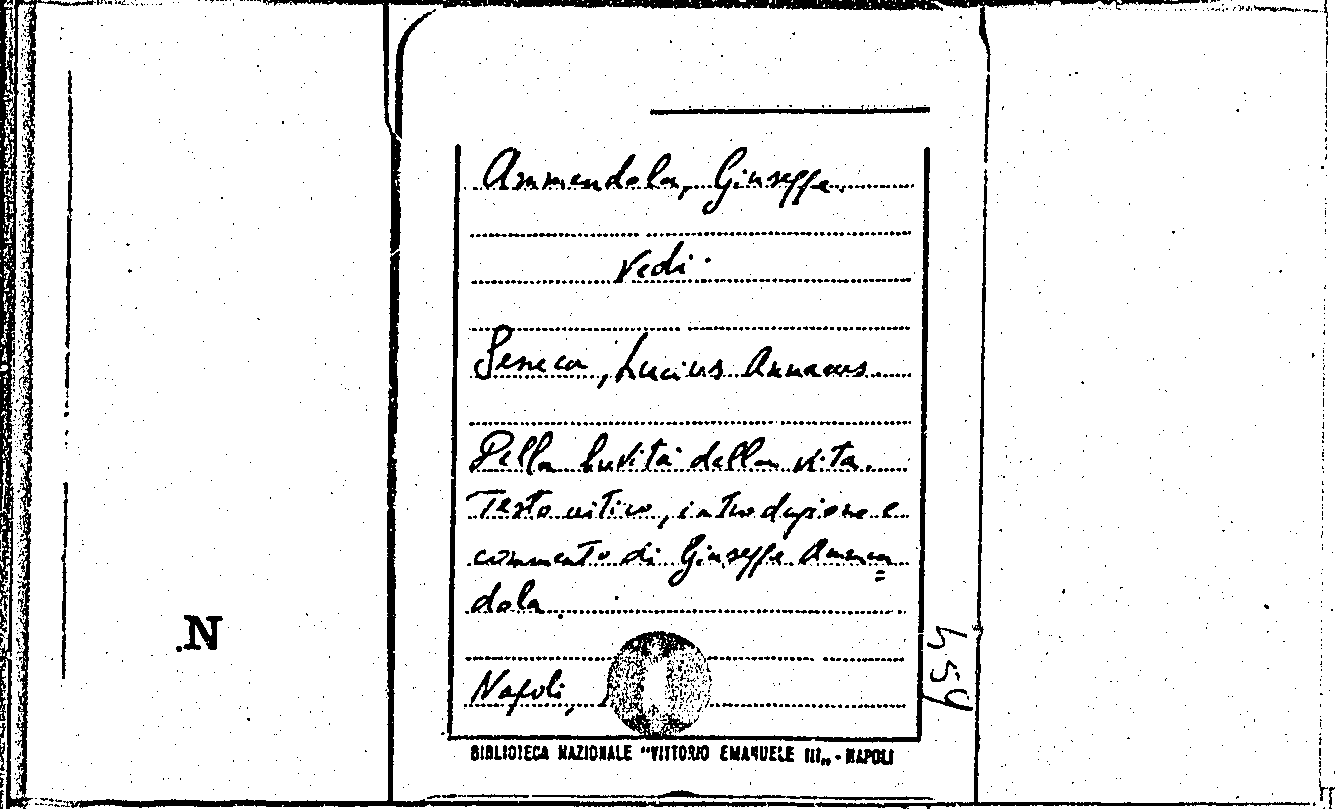 Ammendola, Giuseppe.
Vedi
Seneca, Lucius Annaeus.
Della brevità della vita.
Testo critico, introduzione e
commento di Giuseppe Ammen
=
dola.
Napoli,
BIBLIOTECA NAZIONALE "VITTORIO EMANUELE III„ - NAPOLI
N